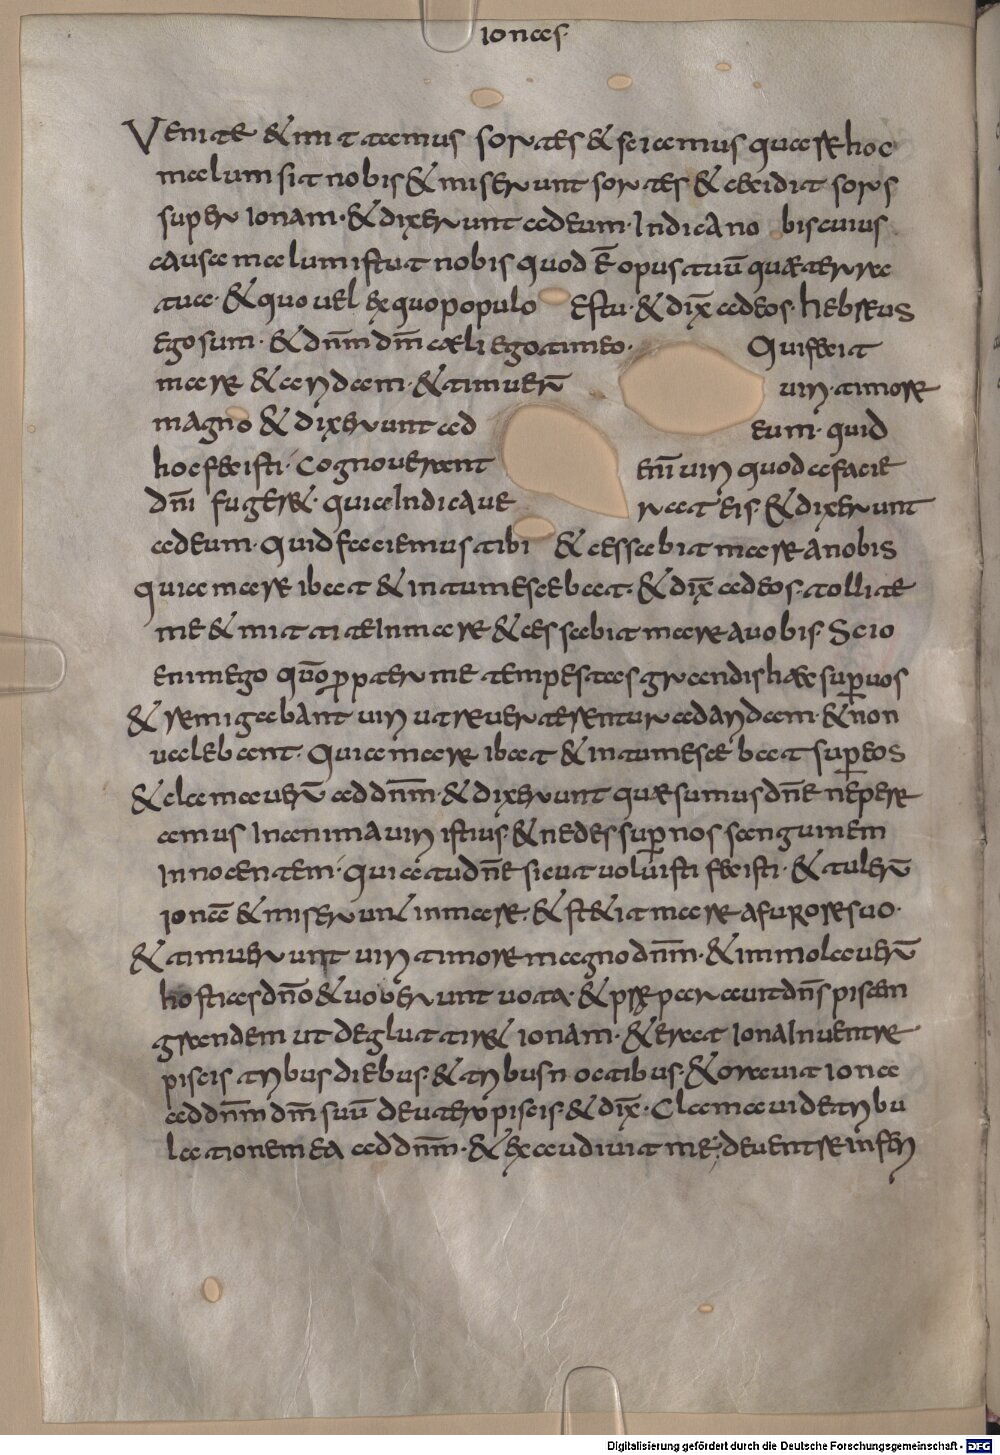 ionas·
Venite & mittamus sortes & sciamus quare hoc
malum sit nobis & miserunt sortes & cecidit sors
super ionam· & dixerunt ad eum· Indica no bis cuius
causa malum istut nobis quod ē opus tuū quæ terra
tua· & quo vel ex quo populo es tu· & dix̄ ad eos· hebreus
ego sum· & dn̄m dm̄ cæli ego timeo· Qui fecit
mare & aridam· & timuer̄ viri timore
magno & dixerunt ad eum· quid
hoc fecisti· Cognoverant enī viri quod a facie
dn̄i fugere· quia Indicave rat eis· & dixerunt
ad eum· Quid faciemus tibi & cessabit mare a nobis
quia mare ibat & intumescebat· & dix̄ ad eos· tollite
me & mittite In mare & cessabit mare a vobis· Scio
enim ego quō propter me tempestas grandis hæc super vos
& remigabant viri ut reverterentur ad aridam· & non
valebant· Quia mare ibat & intumescebat super eos
& clamaver̄ ad dn̄m· & dixerunt quæsumus dn̄e ne pere
amus In anima viri istius· & ne des super nos sanguinem
Innocentem· quia tu dn̄e sicut voluisti fecisti· & tuler̄
ionā & miserunt in mare· & st&it mare a furore suo·
& timuerunt viri timore magno dn̄m· & immolaver̄
hostias dn̄o & voverunt vota· & præparavit dn̄s piscen
grandem ut degluttir& ionam· & erat Iona In ventre
piscis tribus diebus· & tribus noctibus· & oravit iona
ad dn̄m dm̄ suū de utero piscis· & dix̄· Clamavi de tribu
latione mea ad dn̄m· & exaudivit me· de ventre inferi
Digitalisierung gefördert durch die Deutsche Forschungsgemeinschaft - DFG